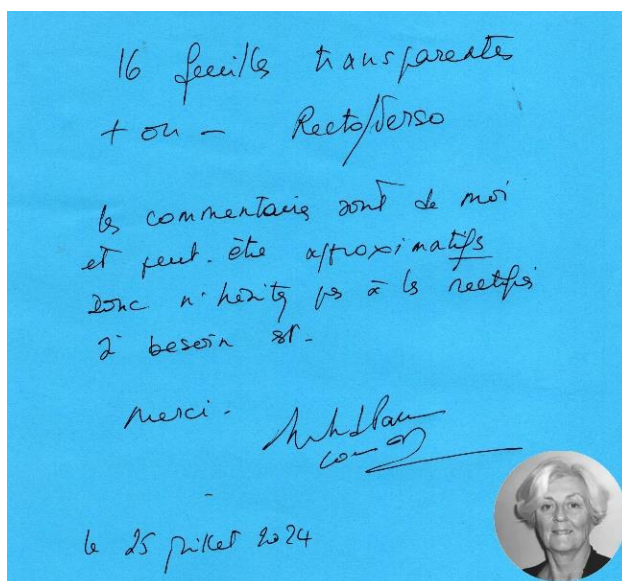 16 feuilles transparentes
+ ou - Recto/Verso
les commentaires sont de moi
et peut-être approximatifs
donc n'hésitez pas à les rectifier
si besoin est.
Merci.
le 25 juillet 2024